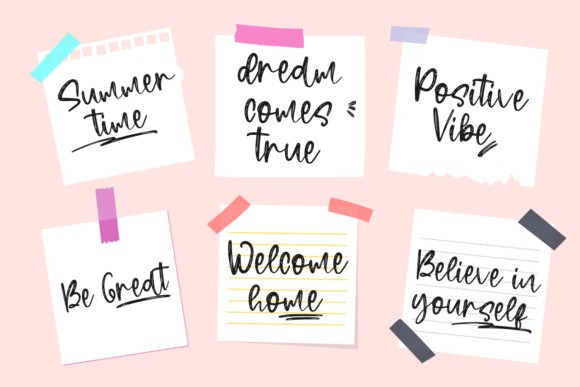 Summer
time
dream
comes
true
Positive
Vibe
Be Great
Welcome
home
Believe in
yourself